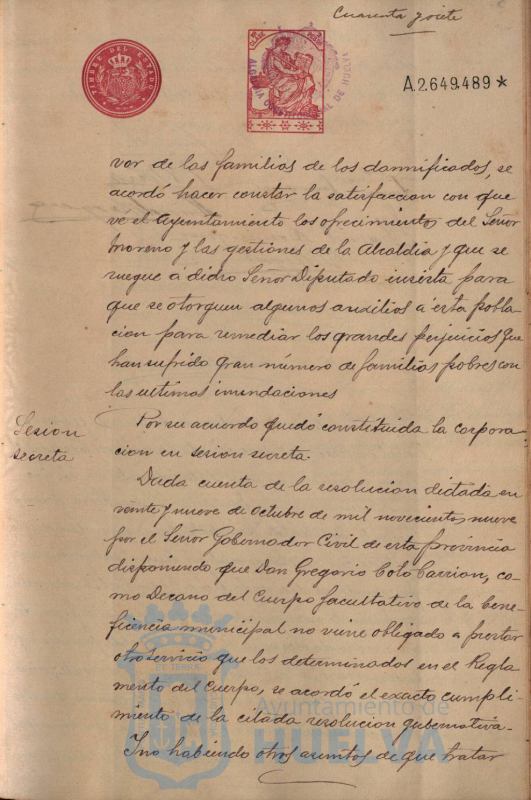 Cuarenta y siete
TIMBRE DEL ESTADO
A.2.649.489 *
vor de las familias de los damnificados, se
acordó hacer constar la satisfaccion con que
vé el Ayuntamiento los ofrecimientos del Señor
Moreno y las gestiones de la Alcaldia y que se
ruegue á dicho Señor Diputado insista para
que se otorguen algunos auxilios á esta pobla
cion para remediar los grandes perjuicios que
han sufrido gran número de familias pobres con
las ultimas inundaciones
Sesion
secreta
Por su acuerdo quedó constituida la corpora
cion en sesion secreta.
Dada cuenta de la resolucion dictada en
veinte y nueve de Octubre de mil novecientos nueve
por el Señor Gobernador Civil de esta provincia
disponiendo que Don Gregorio Coto Carrion, co
mo Decano del Cuerpo facultativo de la bene
ficencia municipal no viene obligado a prestar
otro servicio que los determinados en el Regla
mento del Cuerpo, se acordó el exacto cumpli
miento de la citada resolucion gubernativa.
Y no habiendo otros asuntos de que tratar
Ayuntamiento de
HUELVA